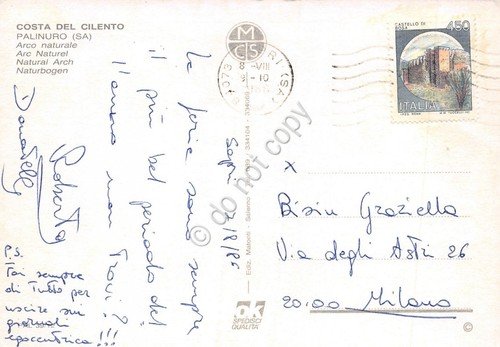 COSTA DEL CILENTO
PALINURO (SA)
Arco naturale
Arc Naturel
Natural Arch
Naturbogen
Le ferie sono sempre
il più bel periodo del
l'anno non trovi?
Roberta
Donatella
P.S.
Fai sempre
di tutto per
uscire sui
giornali
egocentrica!!!
Sapri
Ediz. Matonti - Salerno
MCS
84073 SAPRI (SA)
8-VIII
9-10
CASTELLO DI
450
ITALIA
OK
SPEDISCI
QUALITÀ
x
Bisiu Graziella
Via degli Astri 26
20100 Milano
©
do not copy